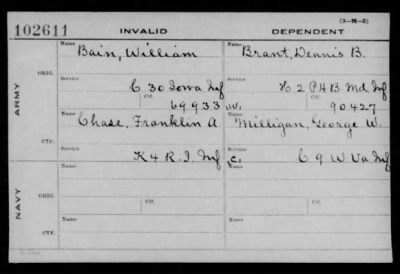 (3-W-5)
102611 INVALID DEPENDENT
Name Bain, William Name Brant, Dennis B.
ARMY
ORIG.
Service C 30 Iowa Inf Service H 2 P H B Md Inf
Ctf. 69933 W. Ctf. 90427
Name Chase, Franklin A Name Milligan, George W.
CTF.
Service K 4 R. I. Inf C. Service C 9 W Va Inf
NAVY
ORIG.
Name Ctf. Name Ctf.
CTF.
Name Name